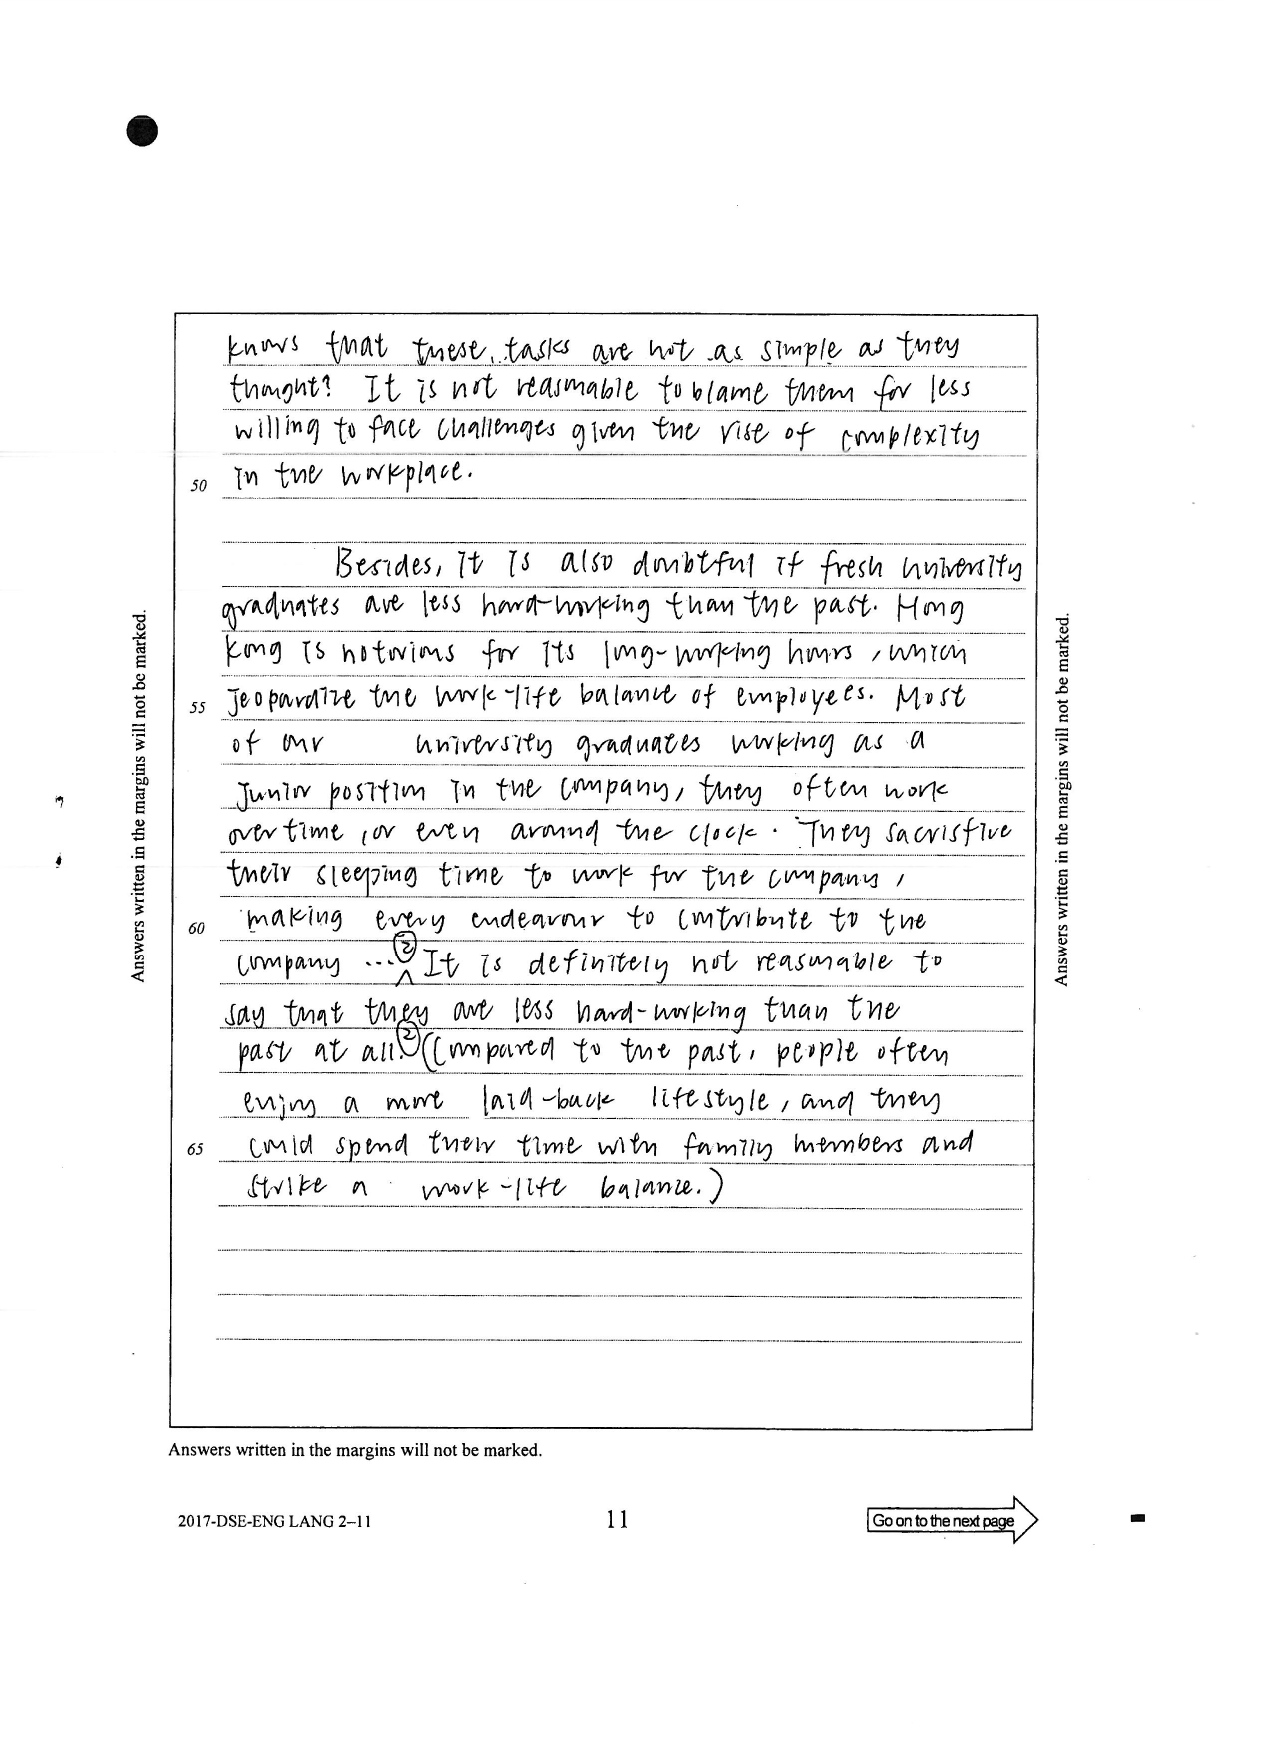 knows that these tasks are not as simple as they
thought? It is not reasonable to blame them for less
willing to face challenges given the rise of complexity
50 in the workplace.
Besides, it is also doubtful if fresh university
graduates are less hard-working than the past. Hong
Kong is notorious for its long-working hours, which
55 jeopardize the work-life balance of employees. Most
of our university graduates working as a
junior position in the company, they often work
overtime, or even around the clock. They sacrisfive
their sleeping time to work for the company,
60 making every endeavour to contribute to the
company ... ② It is definitely not reasonable to
say that they are less hard-working than the
past at all. ② (Compared to the past, people often
enjoy a more laid-back lifestyle, and they
65 could spend their time with family members and
strike a work-life balance.)
Answers written in the margins will not be marked.
Answers written in the margins will not be marked.
Answers written in the margins will not be marked.
2017-DSE-ENG LANG 2–11
11
Go on to the next page